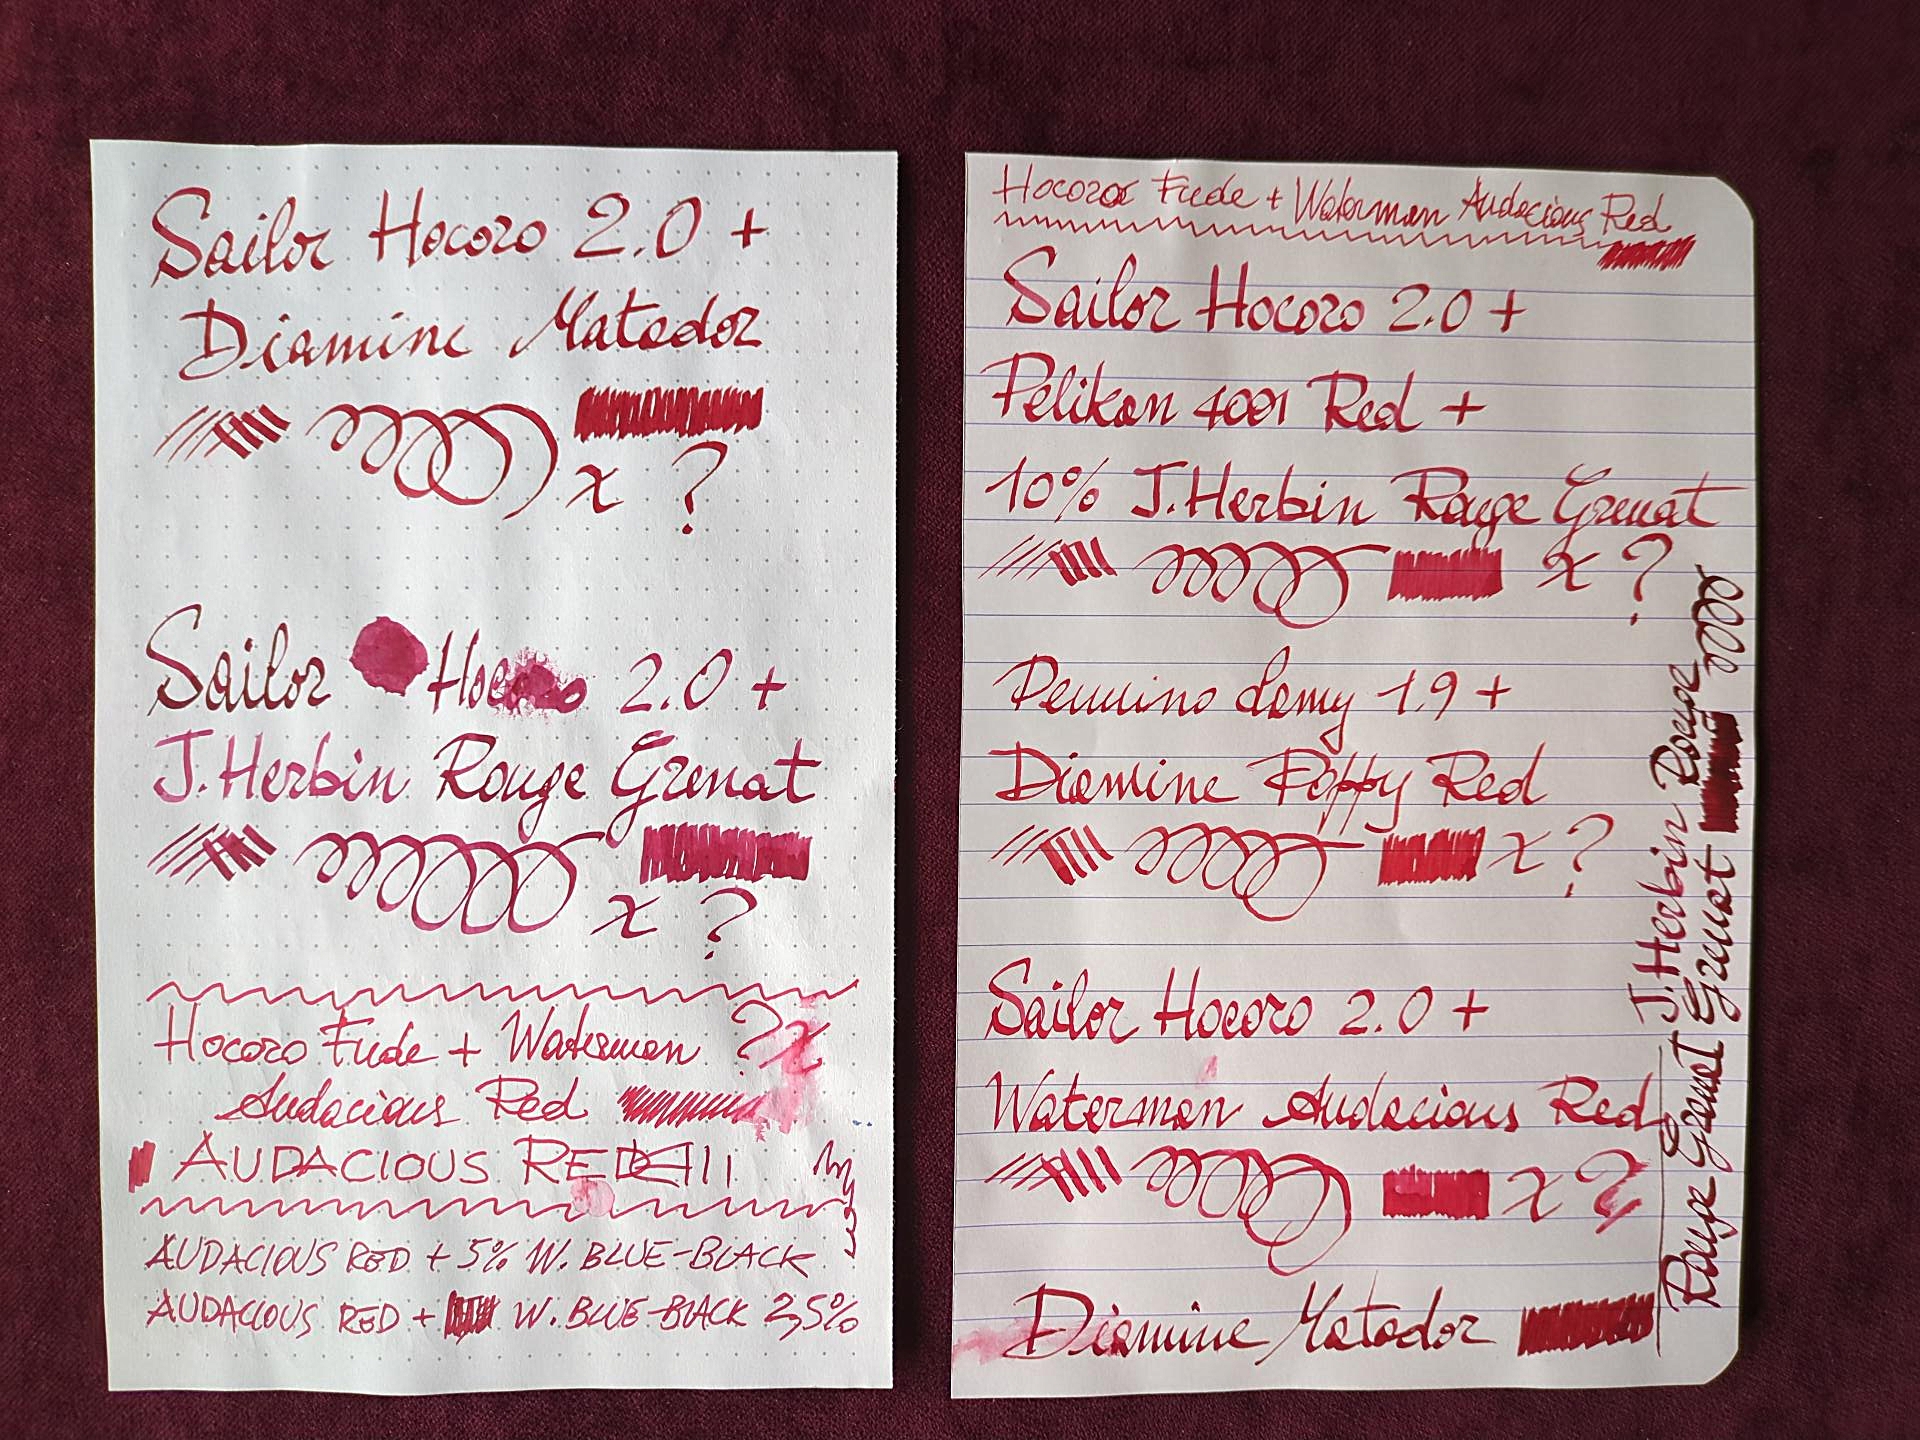 Sailor Hocoro 2.0 +
Diamine Matador
x ?
Sailor Hocoro 2.0 +
J.Herbin Rouge Grenat
x ?
Hocoro Fude + Waterman ?x
Audacious Red
AUDACIOUS RED
AUDACIOUS RED + 5% W. BLUE-BLACK
AUDACIOUS RED + W. BLUE-BLACK 2,5%
Hocoro Fude + Waterman Audacious Red
Sailor Hocoro 2.0 +
Pelikan 4001 Red +
10% J.Herbin Rouge Grenat
x ?
Pennino Lamy 1.9 +
Diamine Poppy Red
x ?
Sailor Hocoro 2.0 +
Waterman Audacious Red
x ?
Diamine Matador
J.Herbin Rouge
Rouge Grenat Grenat